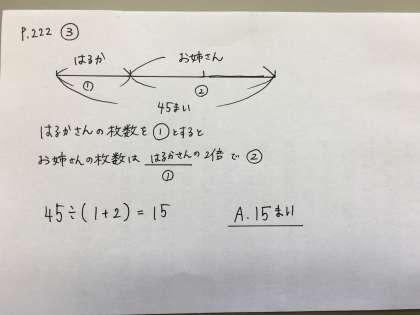 P.222 ③
はるか お姉さん
① ②
45まい
はるかさんの枚数を①とすると
お姉さんの枚数は はるかさんの2倍で②
①
45÷(1+2)=15
A.15まい